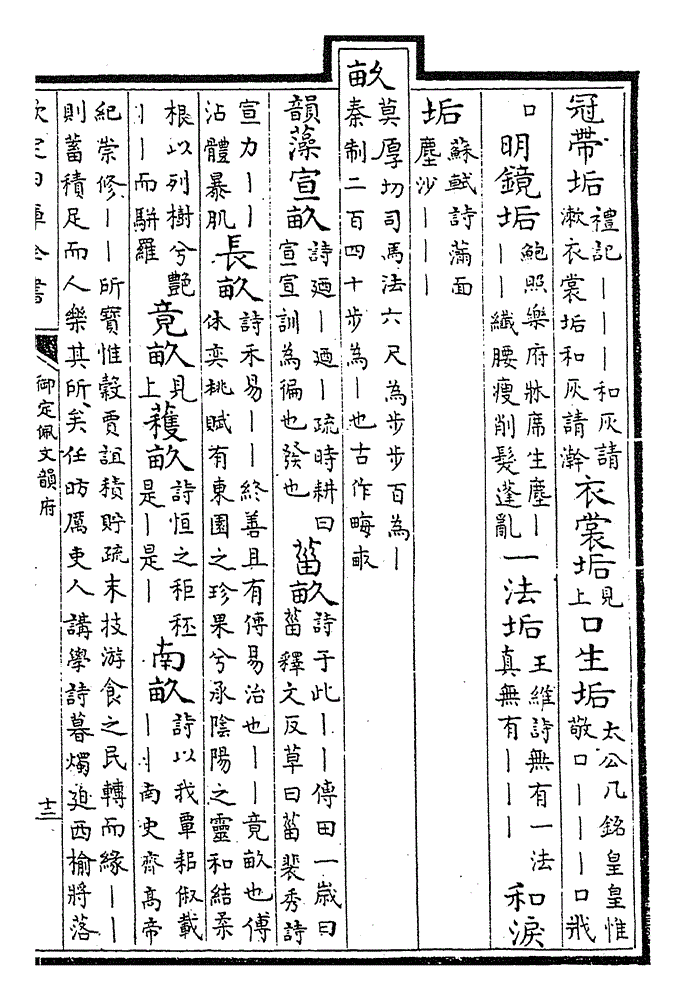 冠帶垢禮記｜｜｜和灰請漱衣裳垢和灰請澣衣裳垢見上口生垢太公几銘皇皇惟敬口｜｜｜口戕
口明鏡垢鮑照樂府牀席生塵｜｜｜纖腰瘦削髮蓬亂一法垢王維詩無有一法真無有｜｜｜和淚
垢蘇軾詩滿面塵沙｜｜｜
畝莫厚切司馬法六尺為步步百為｜秦制二百四十步為｜也古作畮畞
韻藻宣畝詩廼｜廼｜疏時耕曰宣宣訓為徧也發也菑畝詩于此｜｜傳田一歲曰菑釋文反草曰菑裴秀詩
宣力｜｜沾體暴肌長畝詩禾易｜｜終善且有傳易治也｜｜竟畝也傅休奕桃賦有東園之珍果兮承陰陽之靈和結柔
根以列樹兮艷｜｜而駢羅竟畝見上穫畝詩恒之秬秠是｜是｜南畝詩以我覃耜俶載｜｜南史齊高帝
紀崇修｜｜所寶惟穀賈誼積貯疏末技游食之民轉而緣｜｜則蓄積足而人樂其所矣任昉厲吏人講學詩暮燭迫西榆將落
欽定四庫全書
御定佩文韻府